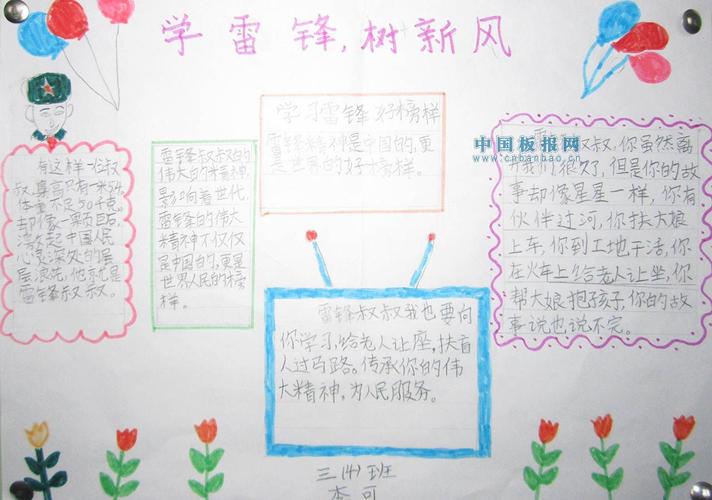 学雷锋,树新风
有这样一位叔
叔,身高只有一米54,
体重不足50千克,
却像一颗
激起中国人民
心灵深处的层
层浪花,他就是
雷锋叔叔。
雷锋叔叔的
伟大的精神,
影响着世代,
雷锋的伟大
精神不仅仅
是中国的,更是
世界人民的好榜
样。
学习雷锋 好榜样
雷锋精神是中国的,更
是世界的好榜样。
中国板报网
www.cnbanbao.cn
叔叔,你虽然离
开我们很久了,但是你的故
事却像星星一样,你有
伙伴过河,你扶大娘
上车,你到工地干活,你
在火车上给老人让坐,你
帮大娘抱孩子,你的故
事说也说不完。
雷锋叔叔我也要向
你学习,给老人让座,扶盲
人过马路。传承你的伟
大精神,为人民服务。
三(4)班
李可